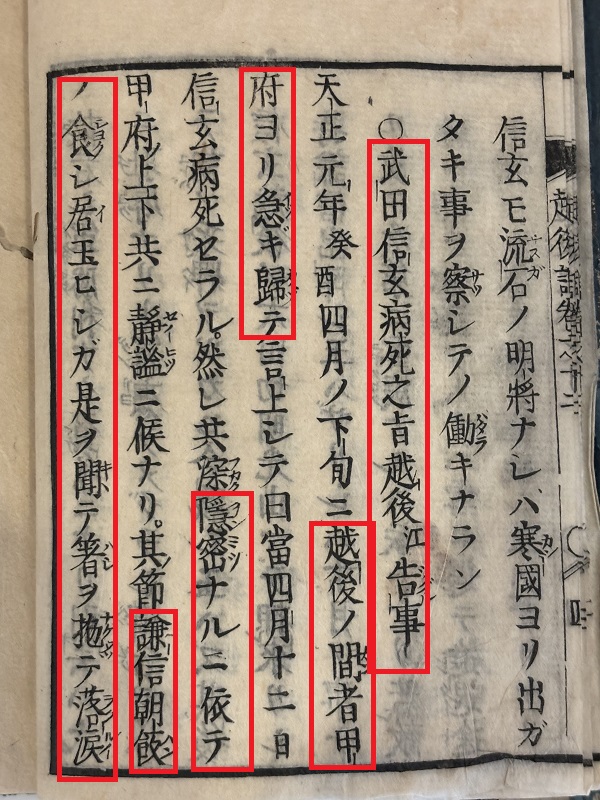 信玄モ流石ノ明將ナレバ寒國ヨリ出ガ
タキ事ヲ察シテノ働キナラン
○武田信玄病死之旨越後江告事
天正元年癸酉四月ノ下旬ニ越後ノ間者甲
府ヨリ急ギ歸テ言上シテ曰當四月十二日
信玄病死セラル。然レ共深隱密ナルニ依テ
甲府ノ上下共ニ靜謐ニ候ナリ。其節謙信朝飯
ノ食シ居玉ヒシガ是ヲ聞テ箸ヲ抛テ落涙